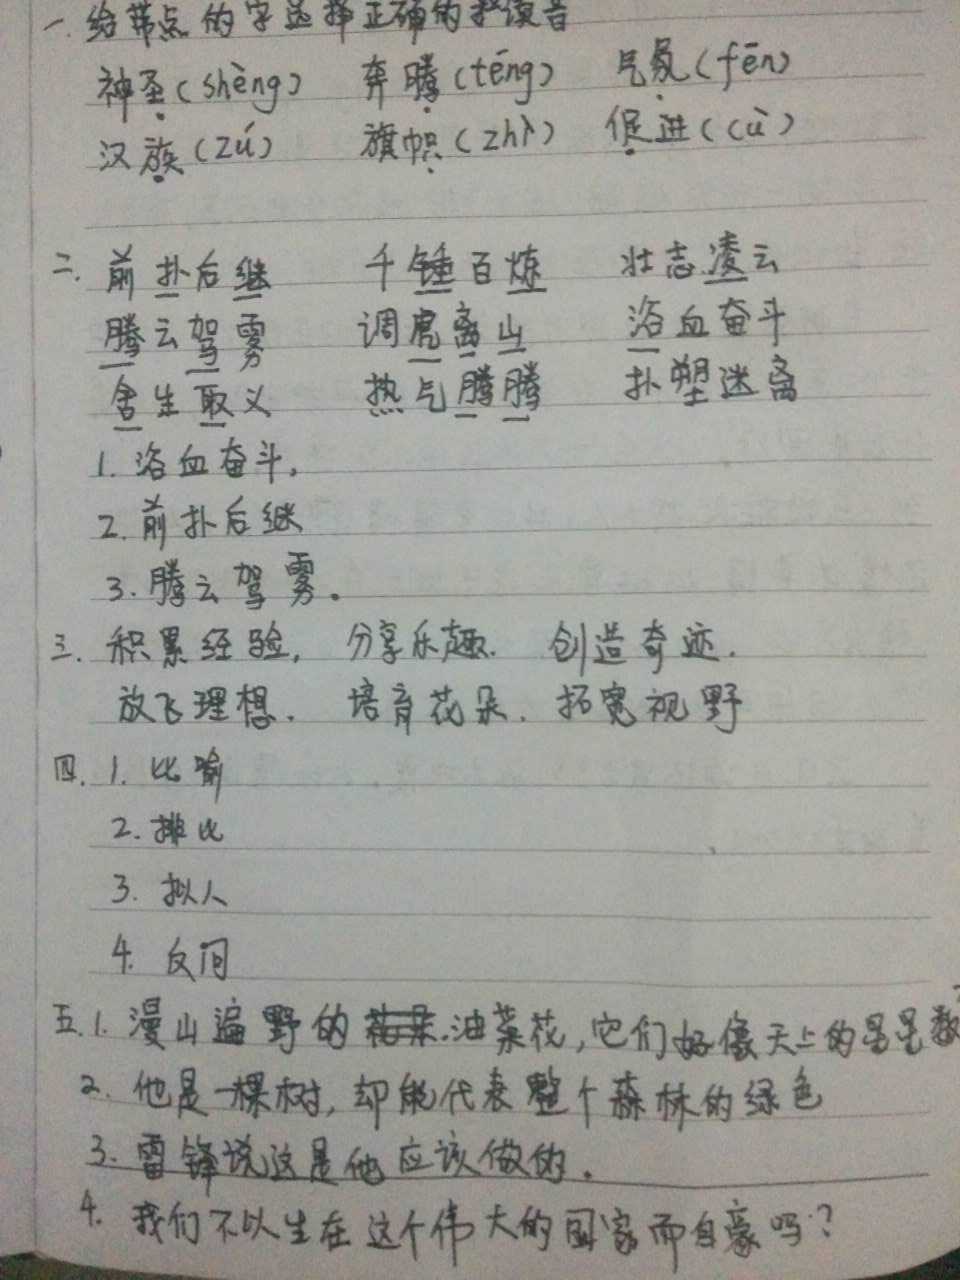 一.给带点的字选择正确的拼读音
神圣(shèng) 奔腾(téng) 气氛(fēn)
汉族(zú) 旗帜(zhì) 促进(cù)
二.前扑后继 千锤百炼 壮志凌云
腾云驾雾 调虎离山 浴血奋斗
舍生取义 热气腾腾 扑塑迷离
1.浴血奋斗.
2.前扑后继
3.腾云驾雾.
三.积累经验, 分享乐趣. 创造奇迹.
放飞理想. 培育花朵. 拓宽视野
四.1.比喻
2.排比
3.拟人
4.反问
五.1.漫山遍野的油菜花,它们好像天上的星星数
2.他是一棵树,却能代表整个森林的绿色
3.雷锋说这是他应该做的.
4.我们不以生在这个伟大的国家而自豪吗?